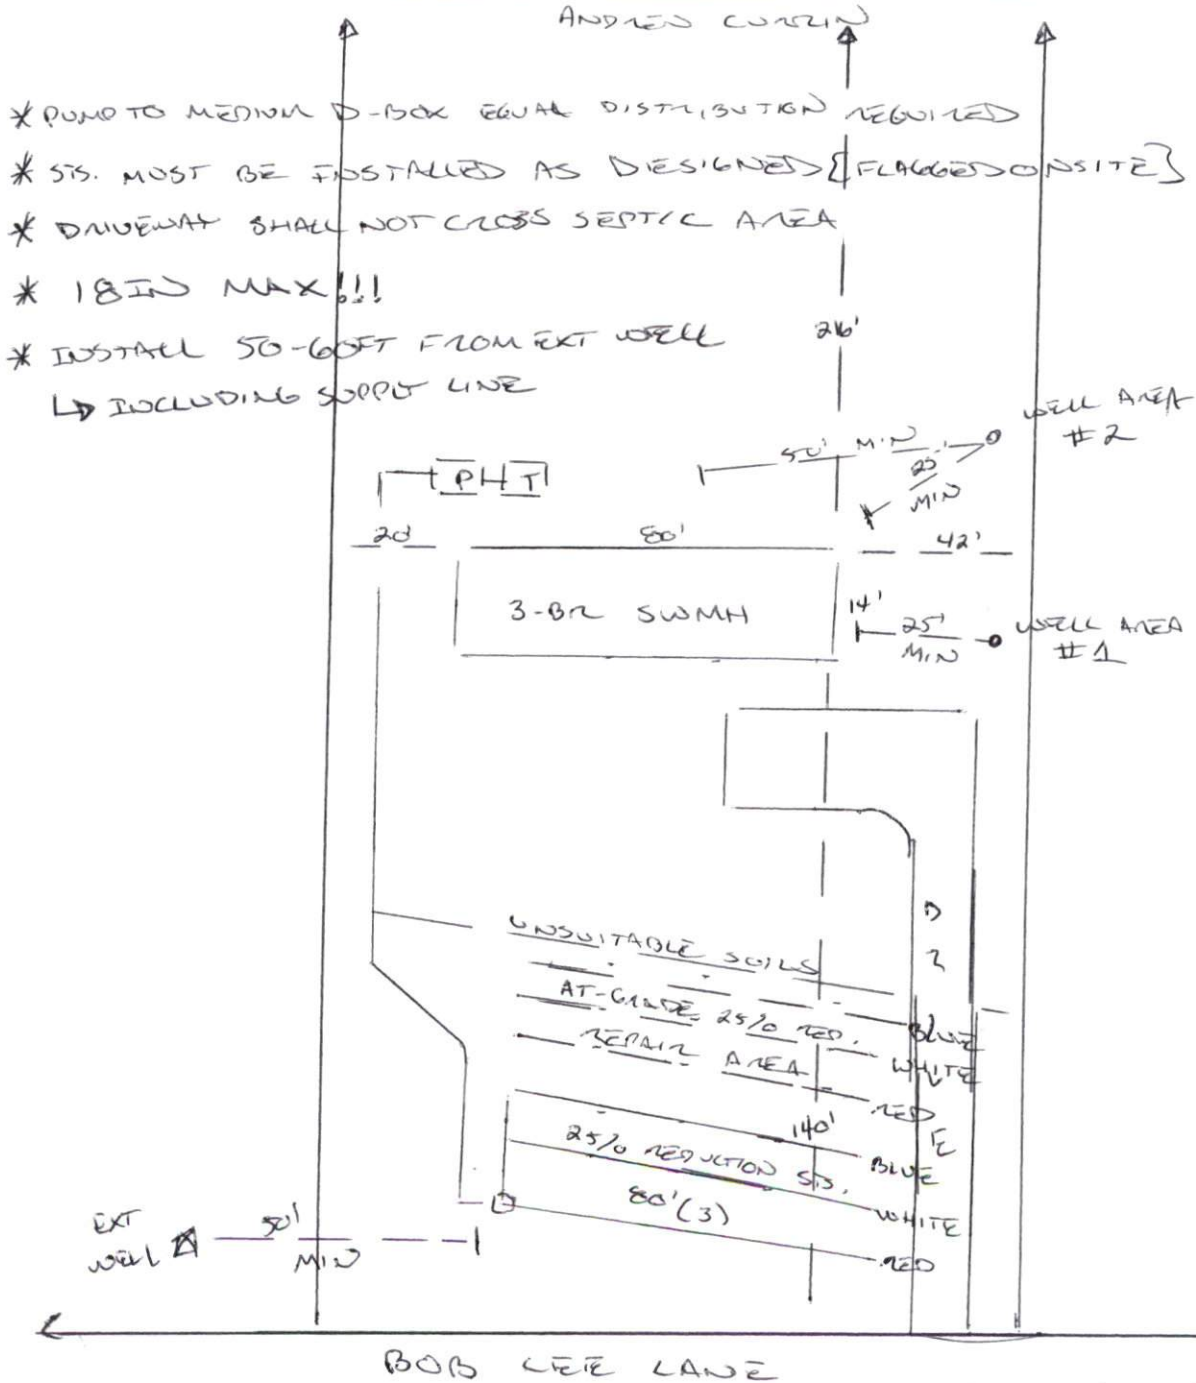 ANDREW CURRIN
* PUMP TO MEDIUM D-BOX EQUAL DISTRIBUTION REQUIRED
* SYS. MUST BE INSTALLED AS DIESIGNED [FLAGGED ONSITE]
* DRIVEWAY SHALL NOT CROSS SEPTIC AREA
* 18IN MAX!!!
* INSTALL 50-60FT FROM EXT WELL
↳ INCLUDING SUPPLY LINE
216'
WELL AREA
#2
50' MIN
25'
MIN
P T
20'
80'
42'
3-BR SWMH
14'
25'
MIN
WELL AREA
#1
UNSUITABLE SOILS
AT-GRADE 25% RED.
REPAIR AREA
BLUE
WHITE
RED
DRIVE
140'
25% REDUCTION SYS.
80'(3)
BLUE
WHITE
RED
EXT
WELL
50'
MIN
BOB LEE LANE